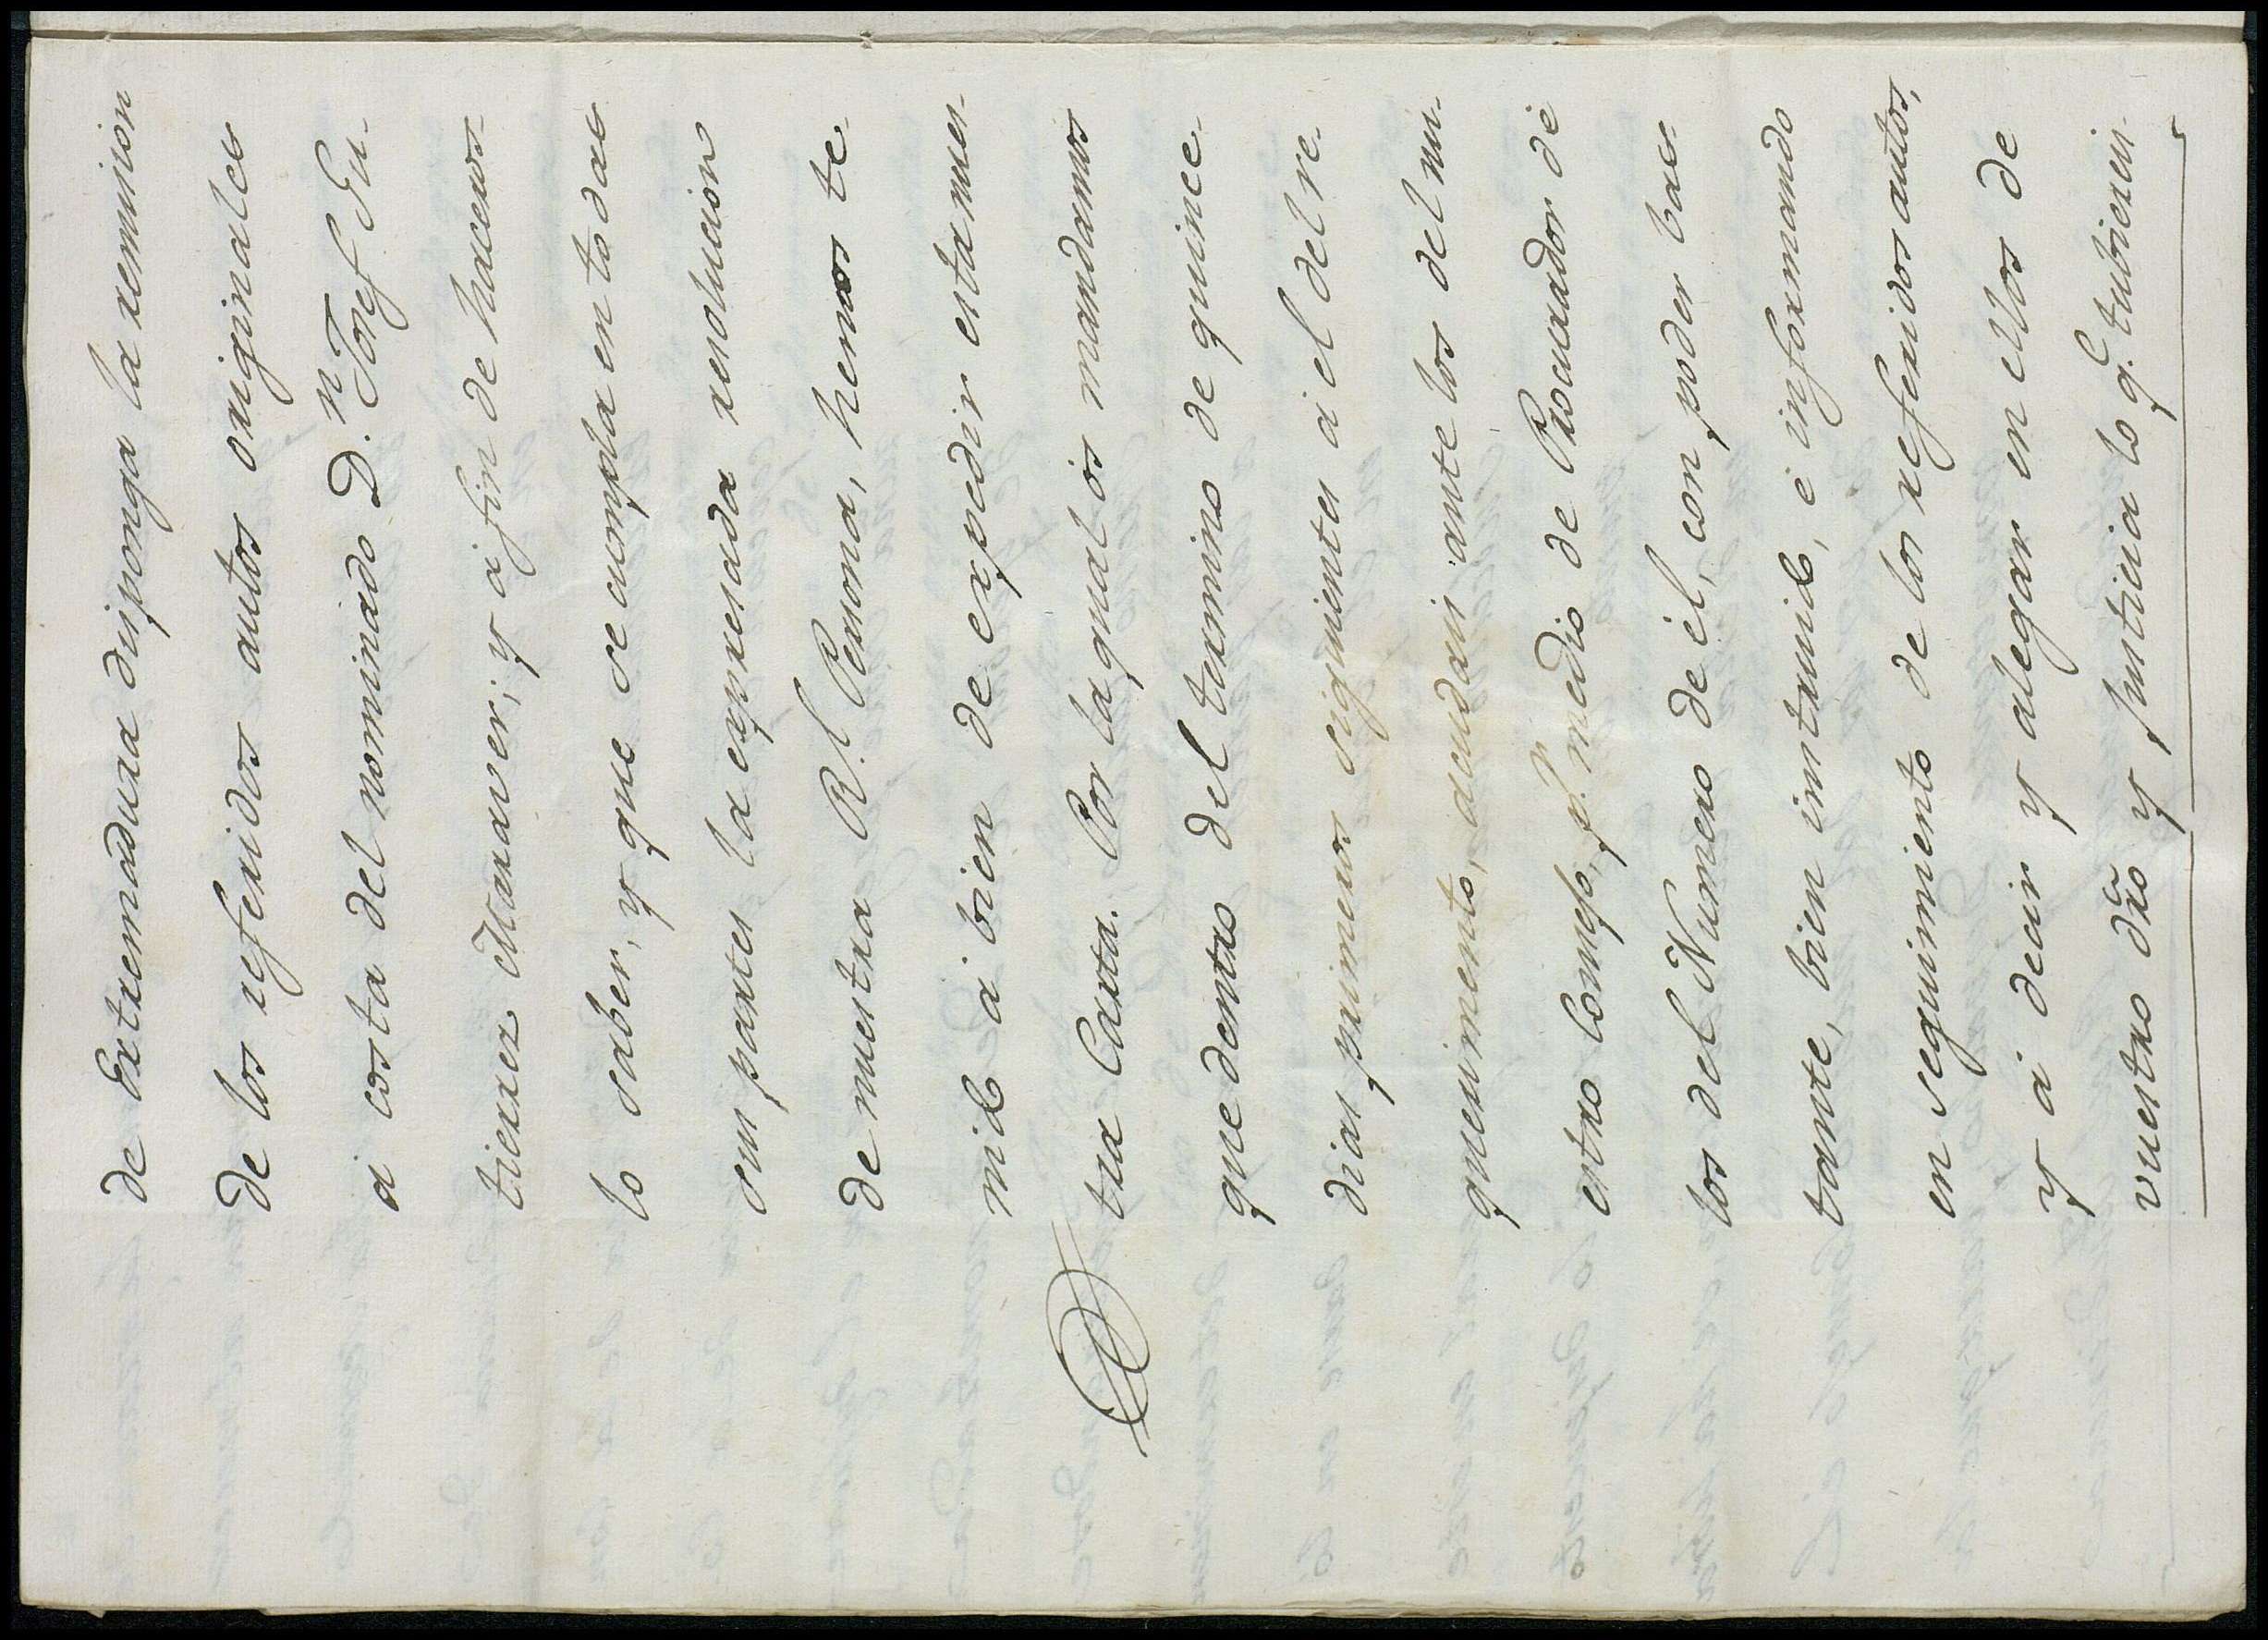 de Extremadura disponga la remision
de los referidos autos originales
à costa del nominado D.ⁿ Josef Gu-
tierrez Maraver; y à fin de haceros-
lo saber, y que se cumpla en todas
sus partes la expresada resolucion
de nuestra R.l Persona, hemos te-
nido à bien de expedir esta nues-
tra Carta. Por la qual ós mandamos
que dentro del termino de quince
dias primeros siguientes à el del re-
querimiento, acudais ante los del nu-
estro Consejo, p.r medio de Procurador dé
los del Numero de él, con poder bas-
tante, bien instruido, è informando
en seguimiento de los referidos autos,
y à decir y alegar en ellos de
vuestro dro y justicia lo q.e tubiereis